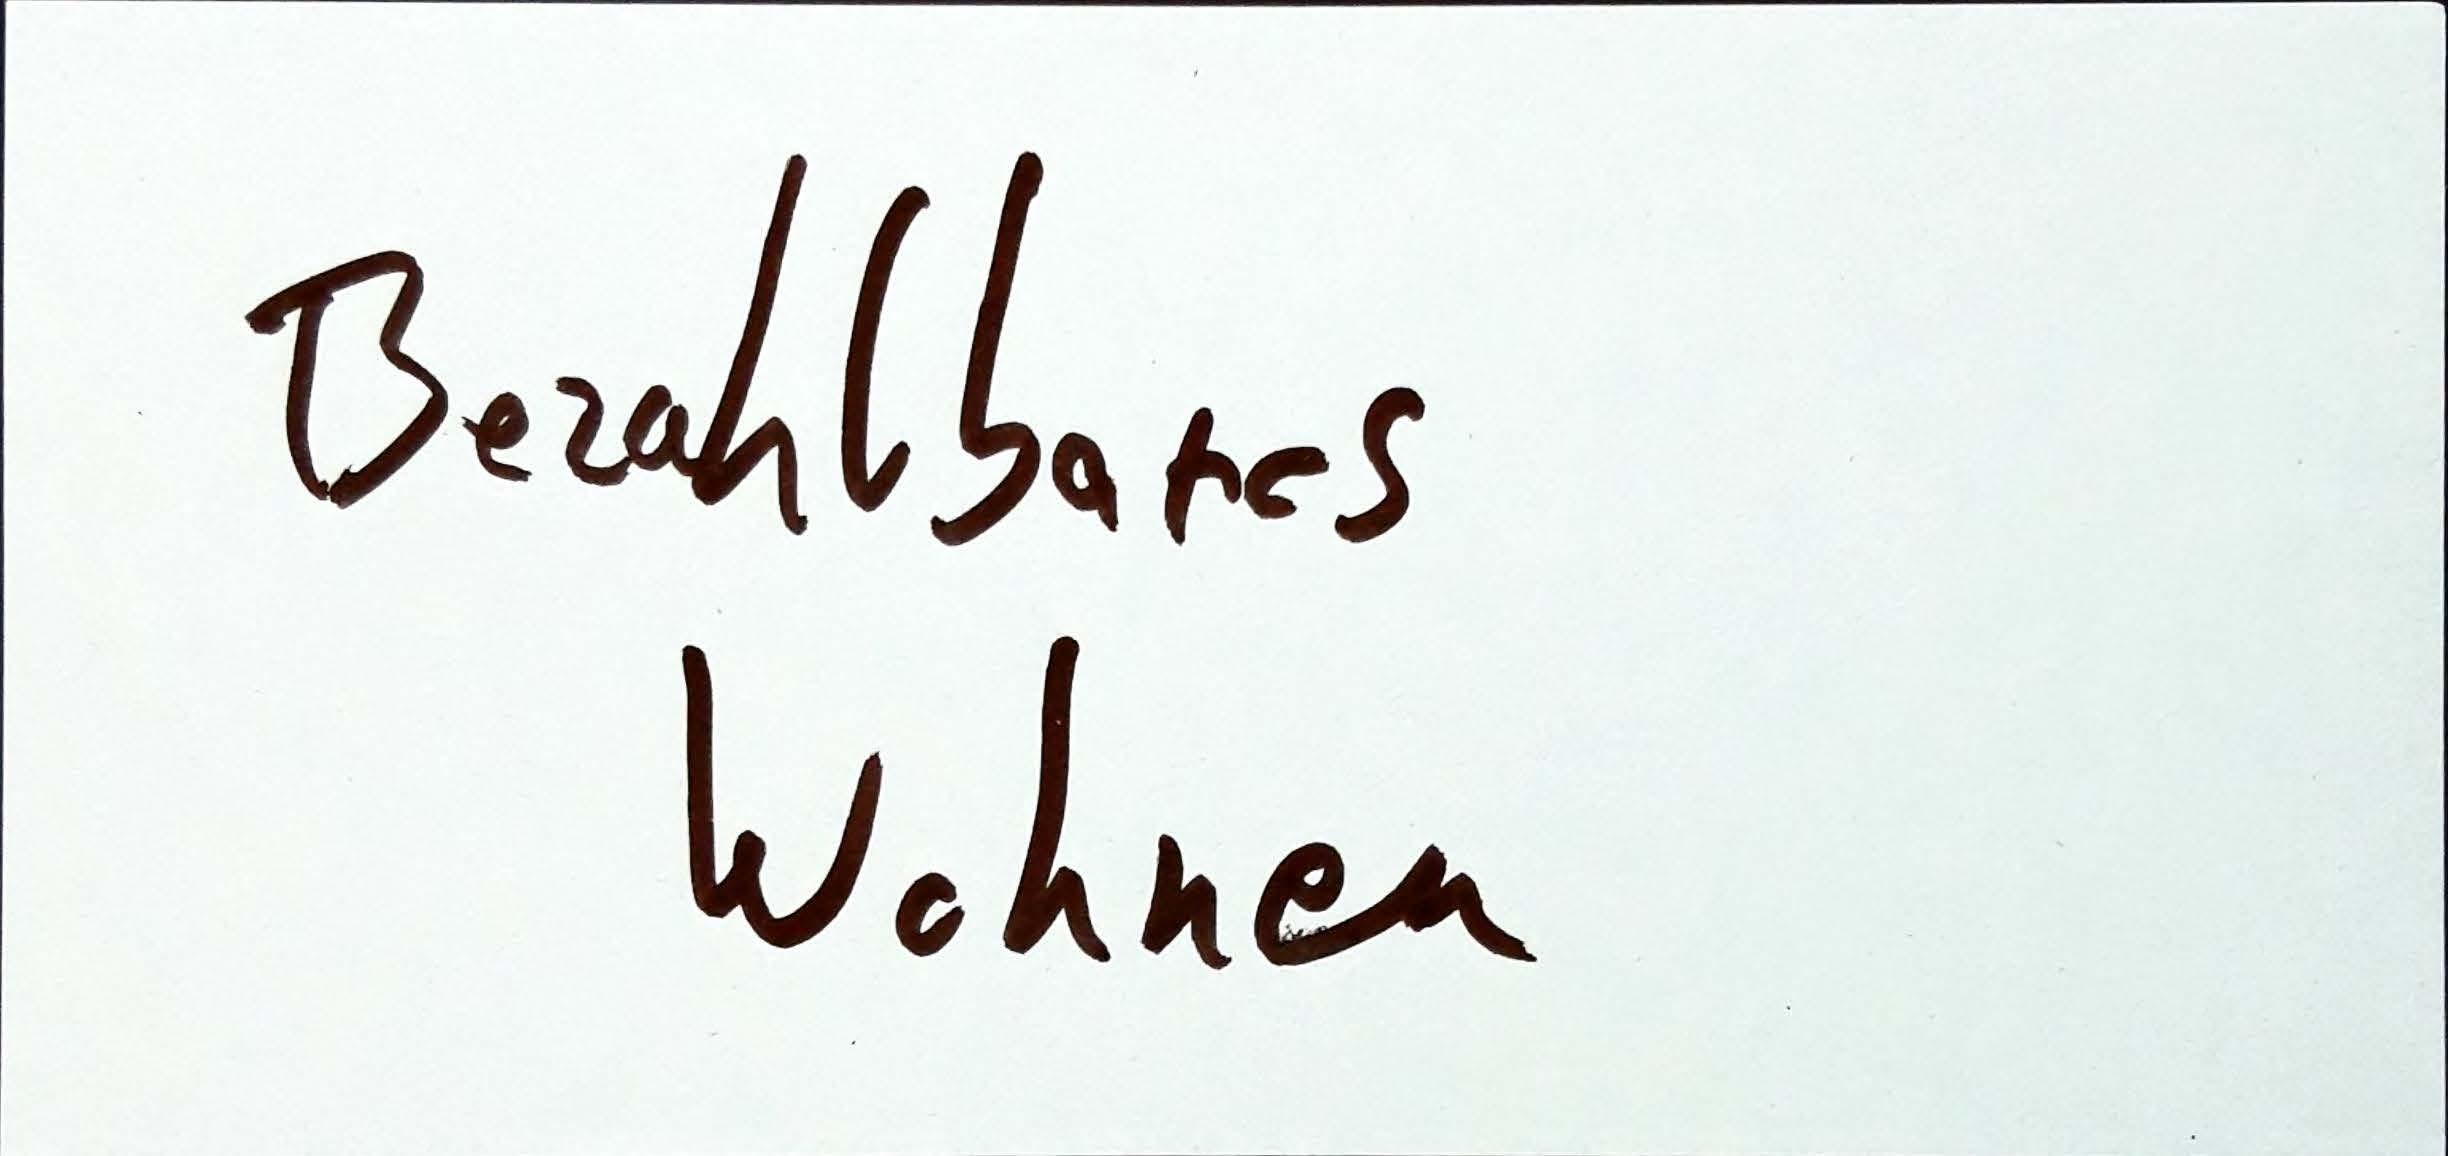 Bezahlbares
Wohnen